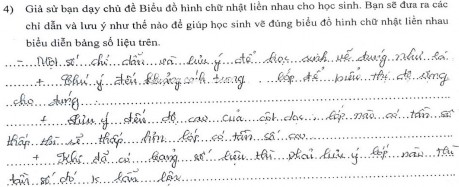 4) Giả sử bạn dạy chủ đề Biểu đồ hình chữ nhật liền nhau cho học sinh. Bạn sẽ đưa ra các
chỉ dẫn và lưu ý như thế nào để giúp học sinh vẽ đúng biểu đồ hình chữ nhật liền nhau
biểu diễn bảng số liệu trên.
- Một số chỉ dẫn và lưu ý để học sinh vẽ đúng như là
+ Chú ý đến khoảng cách tương lớp để biểu thị độ rộng
cho đúng.
+ Lưu ý đến độ cao của cột dọc, lớp nào có tần số
thấp thì sẽ thấp hơn lớp có tần số cao
+ Khi đã có bảng số liệu thì phải lưu ý lớp nào thì
tần số đó k lẫn lộn